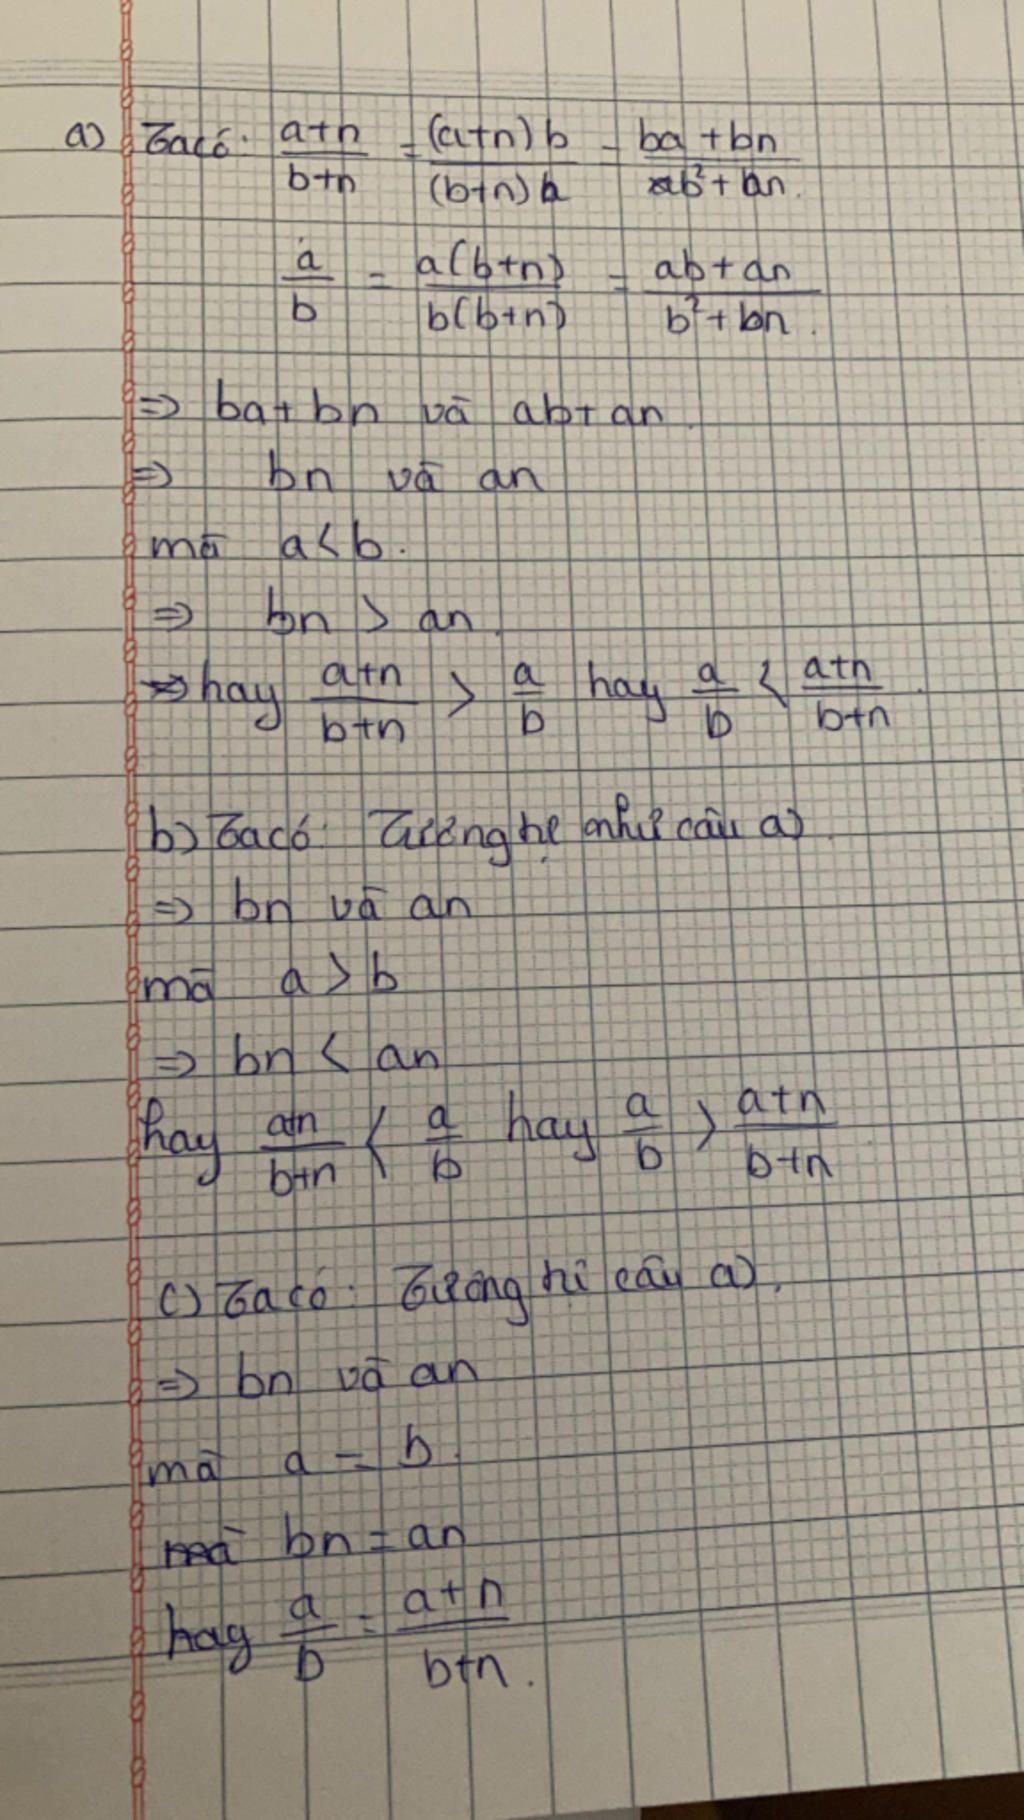 a) Ta có: a+n/b+n = (a+n)b/(b+n)b = ba+bn/b²+bn.
a/b = a(b+n)/b(b+n) = ab+an/b²+bn.
=> ba+bn và ab+an.
=> bn và an
mà a<b.
=> bn > an.
hay a+n/b+n > a/b hay a/b < a+n/b+n.
b) Ta có: Tương như câu a)
=> bn và an
mà a>b
=> bn < an
hay a+n/b+n < a/b hay a/b > a+n/b+n
c) Ta có: Tương câu a).
=> bn và an
mà a = b.
mà bn = an
hay a/b = a+n/b+n.